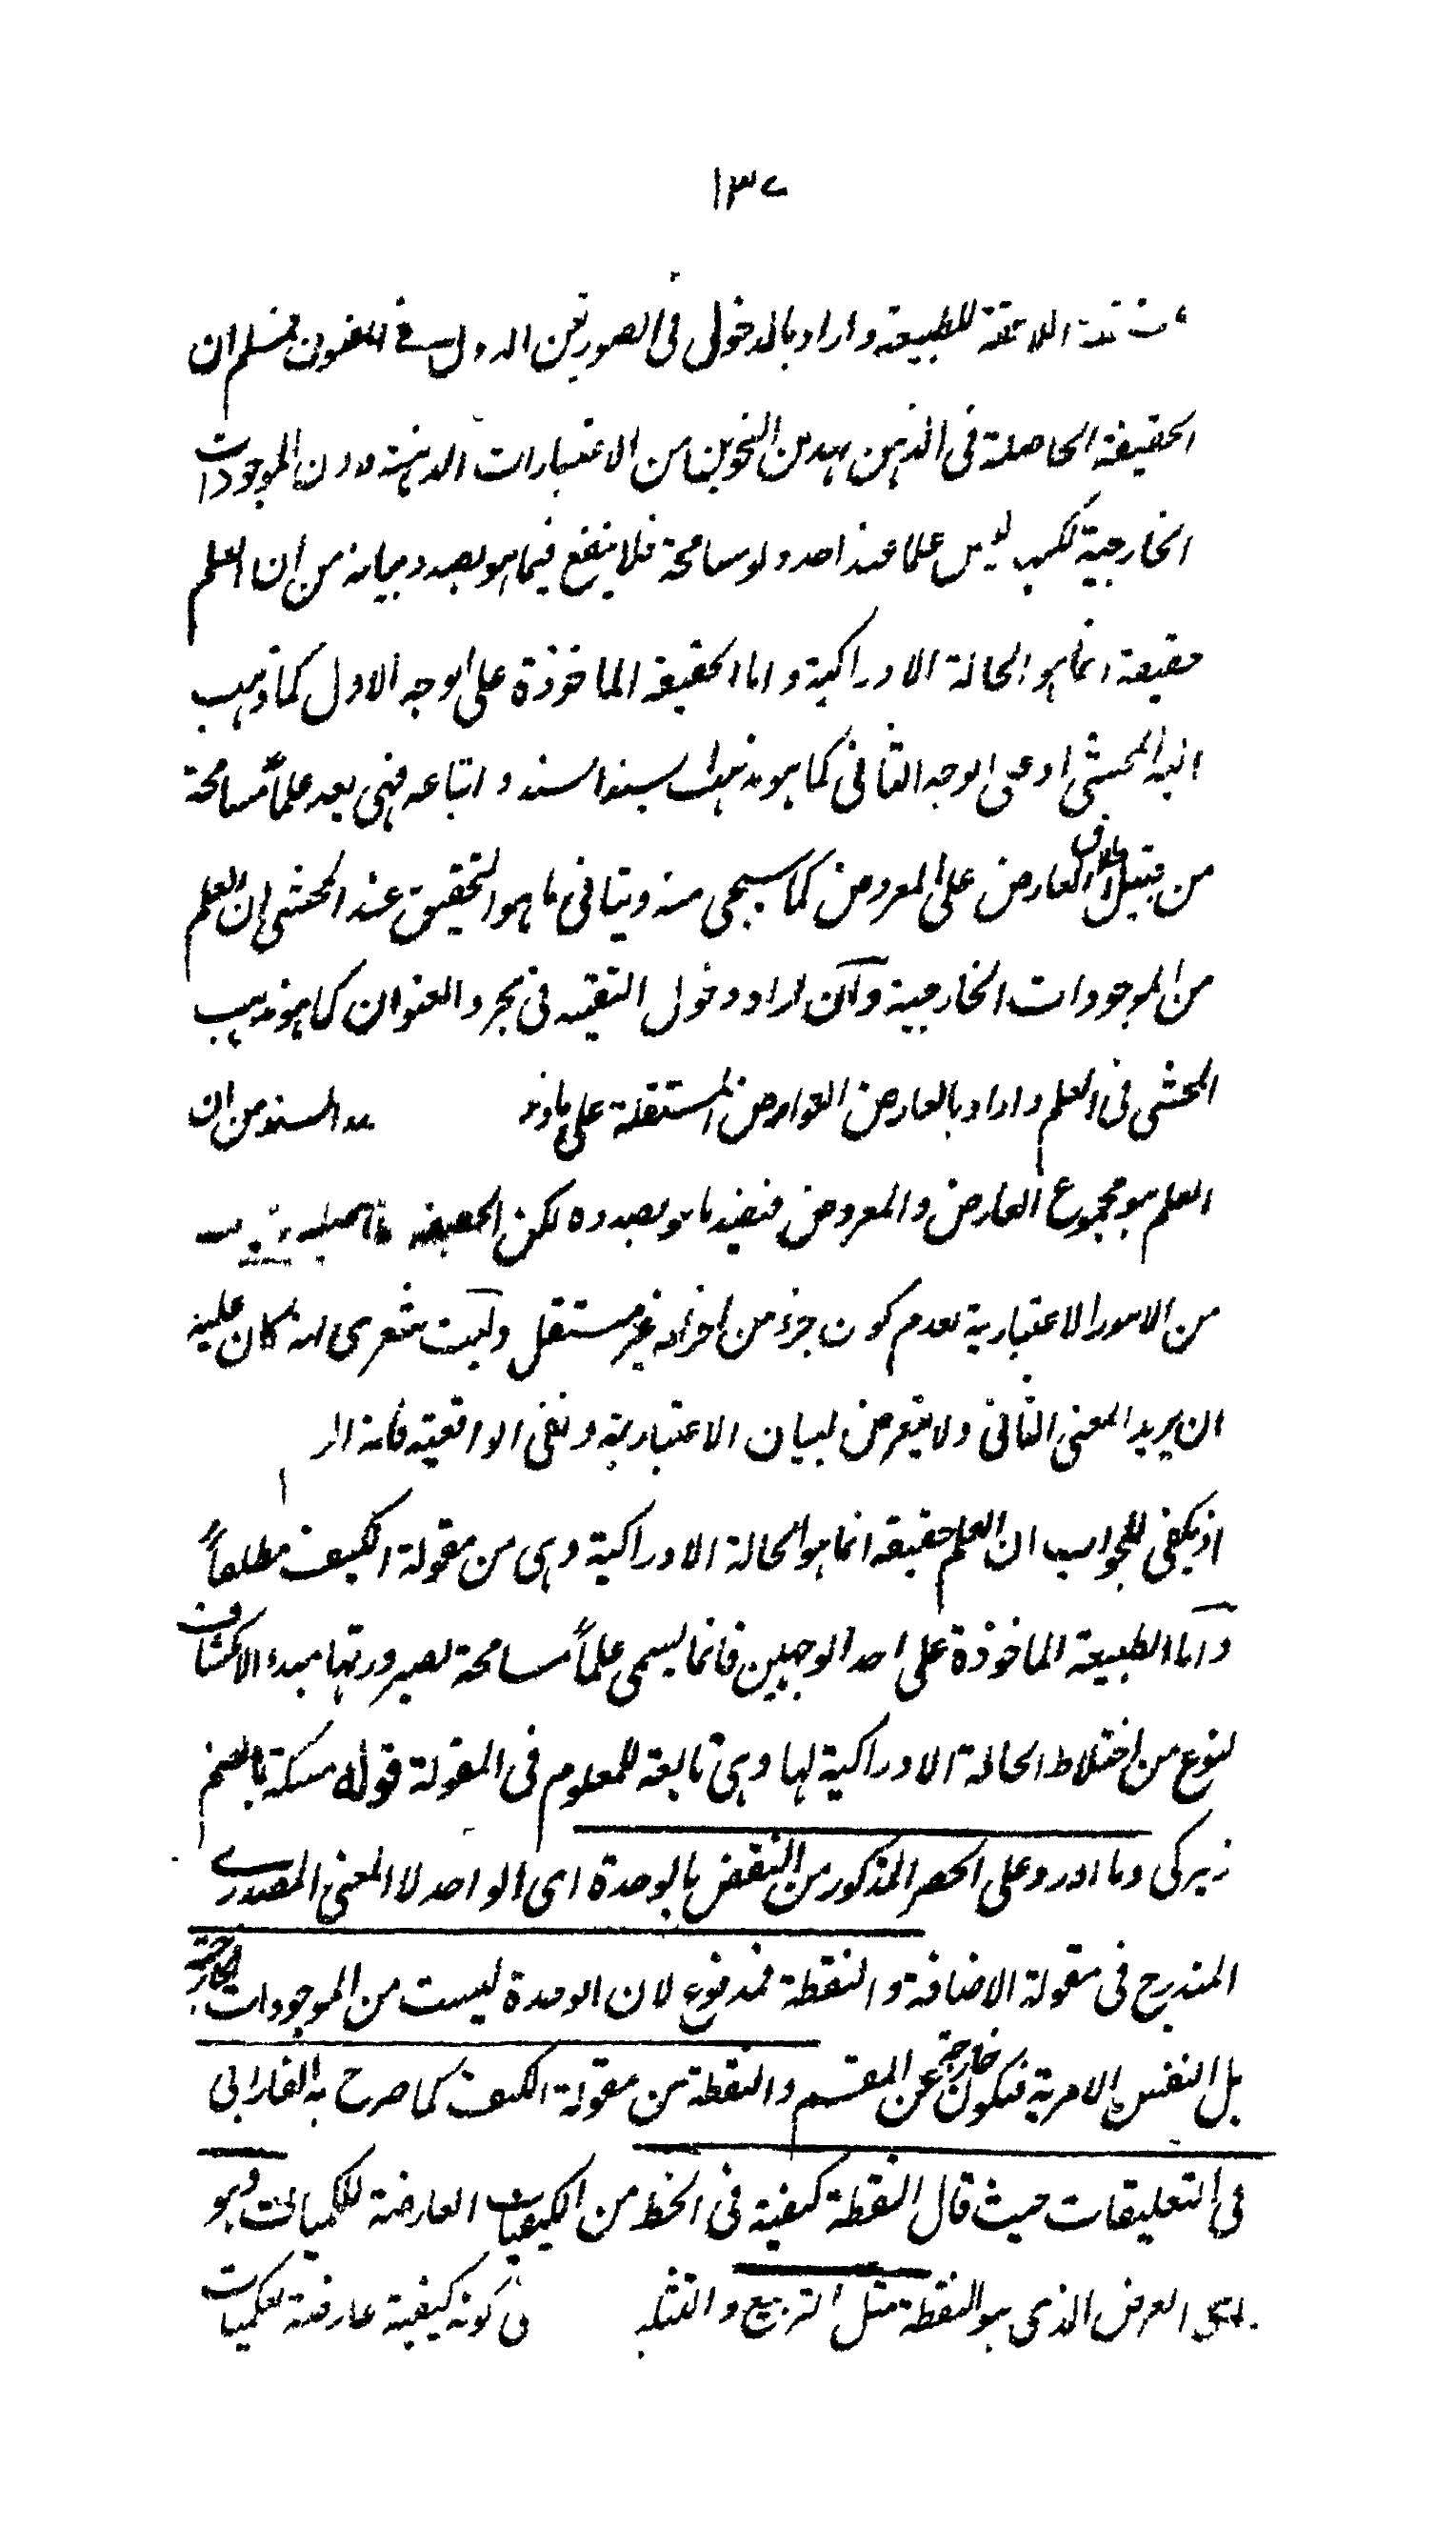 ١٣٧
اللاحقة للطبيعة واراد بالدخول فى الصورتين الدخول فے العنوان فمسلم ان
الحقيقة الحاصلة فى الذهن بهذين النحوين من الاعتبارات الذهنية دون الموجودات
الخارجية لكنه ليس علما عند احد ولو مسامحة فلا ينفع فيما هو بصدد بيانه من ان العلم
حقيقة انما هو الحالة الادراكية واما الحقيقة الماخوذة على الوجه الاول كما ذهب
اليه المحشى او على الوجه الثانى كما هو مذهب سيد السند واتباعه فهى يعد علماً مسامحة
من قبيل اطلاق العارض على المعروض كما سيجى منه وينافى ما هو التحقيق عند المحشى ان العلم
من الموجودات الخارجية وان اراد دخول التقييد فى مجرد العنوان كما هو مذهب
المحشى فى العلم واراد بالعارض العوارض المستقلة على ما السند من ان
العلم هو مجموع العارض والمعروض فيفيد ما هو بصدده لكن الحقيقة
من الامور الاعتبارية لعدم كون جزء من اجزائه غير مستقل وليت شعرى انه كان عليه
ان يريد المعنى الثانى ولا يتعرض لبيان الاعتبارية ونفى الواقعية فانه
اذ يكفى للجواب ان العلم حقيقة انما هو الحالة الادراكية وهى من مقولة الكيف مطلقاً
واما الطبيعة الماخوذة على احد الوجهين فانما يسمى علماً مسامحة لصيرورتها مبدء الانكشاف
لنوع من اختلاط الحالة الادراكية لها وهى تابعة للمعلوم فى المقولة قوله مسكة بالضم
زيركى وما اورد على الحصر المذكور من النقض بالوحدة اى الواحد لا المعنى المصدرے
المندرج فى مقولة الاضافة والنقطة فمدفوع لان الوحدة ليست من الموجودات الخارجية
بل النفس الامرية فتكون خارجة عن المقسم والنقطة من مقولة الكيف كما صرح به الفارابى
فى التعليقات حيث قال النقطة كيفية فى الخط من الكيفيات العارضة للكميات وهو
العرض الذى هو النقطة مثل التربيع والتثليث فى كونه كيفية عارضة لكميات